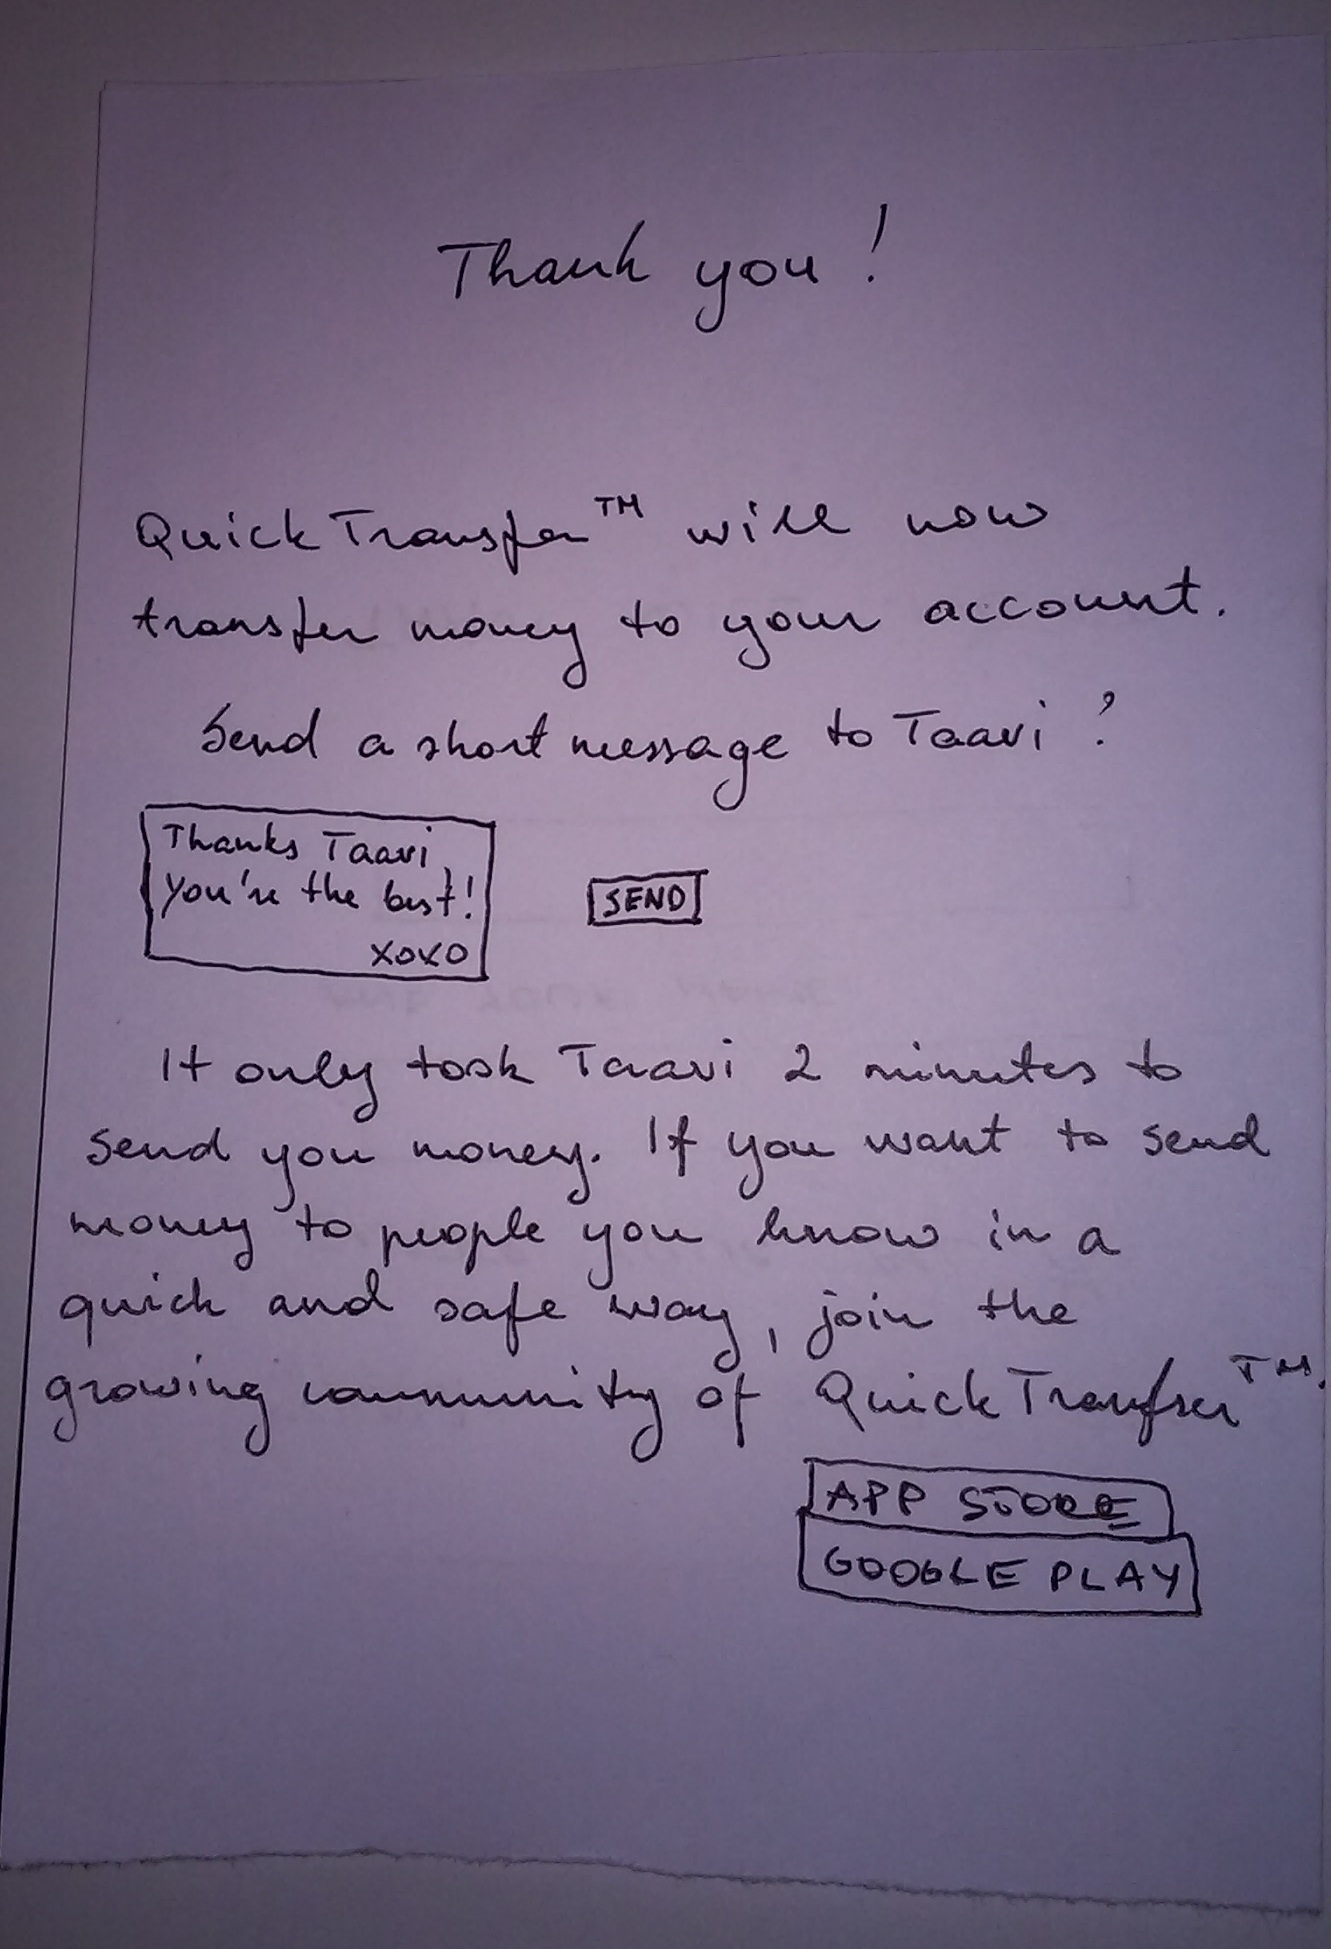 Thank you!
QuickTransfer™ will now
transfer money to your account.
Send a short message to Taavi?
Thanks Taavi
You're the best!
xoxo
SEND
It only took Taavi 2 minutes to
send you money. If you want to send
money to people you know in a
quick and safe way, join the
growing community of QuickTranfser™.
APP STORE
GOOGLE PLAY